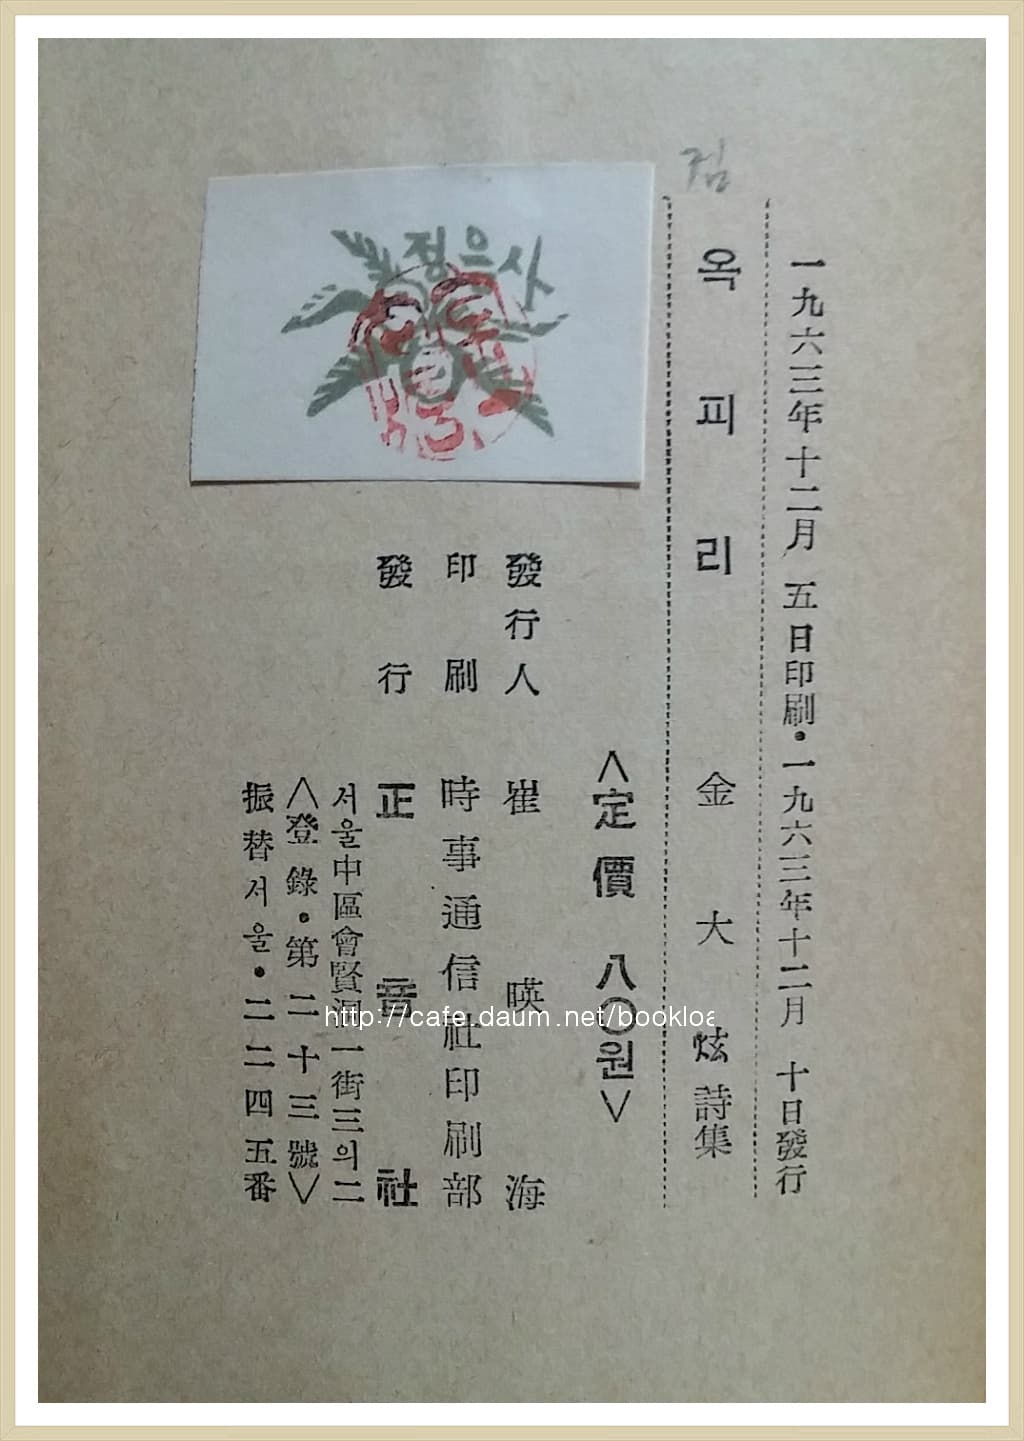 一九六三年十二月 五日印刷·一九六三年十二月 十日發行
옥피리 金大炫詩集
검
<定價 八〇원>
發行人 崔暎海
印刷 時事通信社印刷部
發行 正音社
서울中區會賢洞一街三의二
<登錄·第二十三號>
振替서울·二二四五番
정음사
http://cafe.daum.net/bookloa